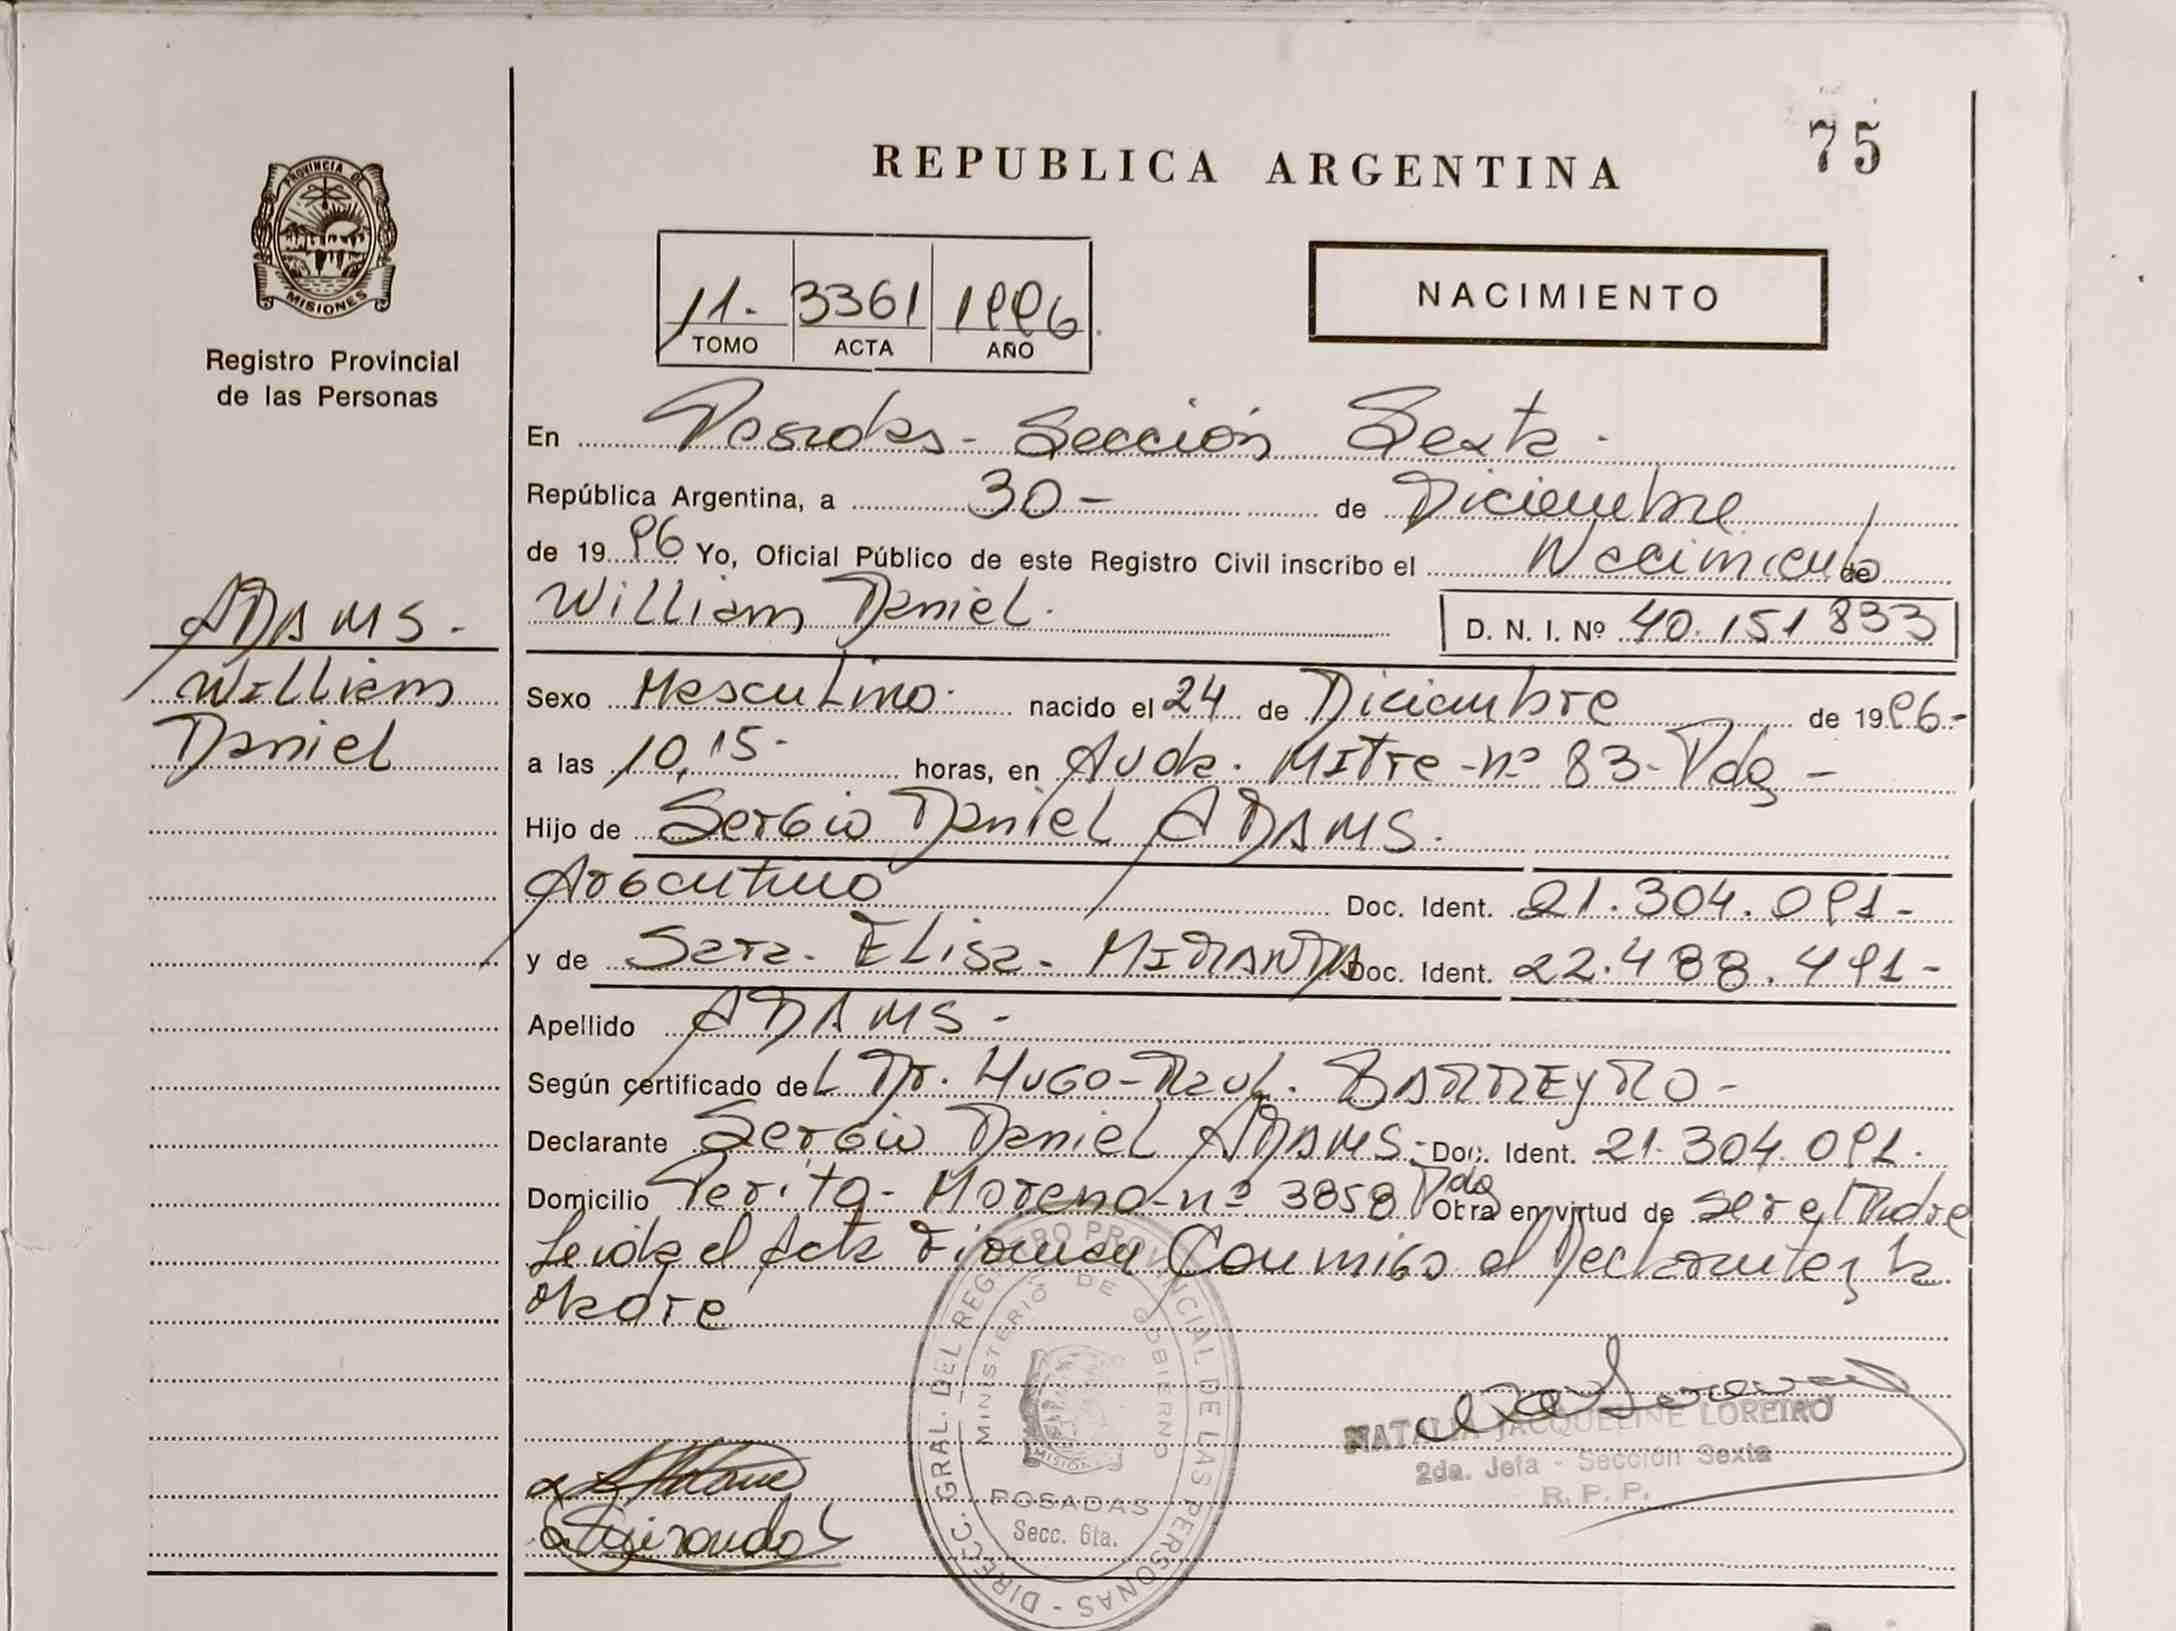 75
REPUBLICA ARGENTINA
PROVINCIA DE
MISIONES
Registro Provincial
de las Personas
NACIMIENTO
11. 3361 1996
TOMO ACTA AÑO
En Posadas - Sección Sexta.
República Argentina, a 30 - de Diciembre
de 1996 Yo, Oficial Público de este Registro Civil inscribo el Nacimiento de
William Daniel. D. N. I. Nº 40.151 833
ADAMS.-
William
Daniel
Sexo Masculino. nacido el 24 de Diciembre de 1996.-
a las 10,15- horas, en Avda. Mitre - nº 83- Pdas -
Hijo de Sergio Daniel ADAMS.
Argentino Doc. Ident. 21.304.091-
y de Sara. Elisa. MIRANDA Doc. Ident. 22.488.491-
Apellido ADAMS -
Según certificado del Dr. Hugo-Raul. BARREYRO-
Declarante Sergio Daniel ADAMS- Doc. Ident. 21.304.091.
Domicilio Perito- Moreno-nº 3858 Pdas Obra en virtud de ser el Padre
Leida el Acta Firman Conmigo el Declarante y la
Madre
DIRECC. GRAL. DEL REGISTRO PROVINCIAL DE LAS PERSONAS -
MINISTERIO DE GOBIERNO
MISIONES
POSADAS
Secc. 6ta.
NATALIA JACQUELINE LOREIRO
2da. Jefa - Sección Sexta
R. P. P.